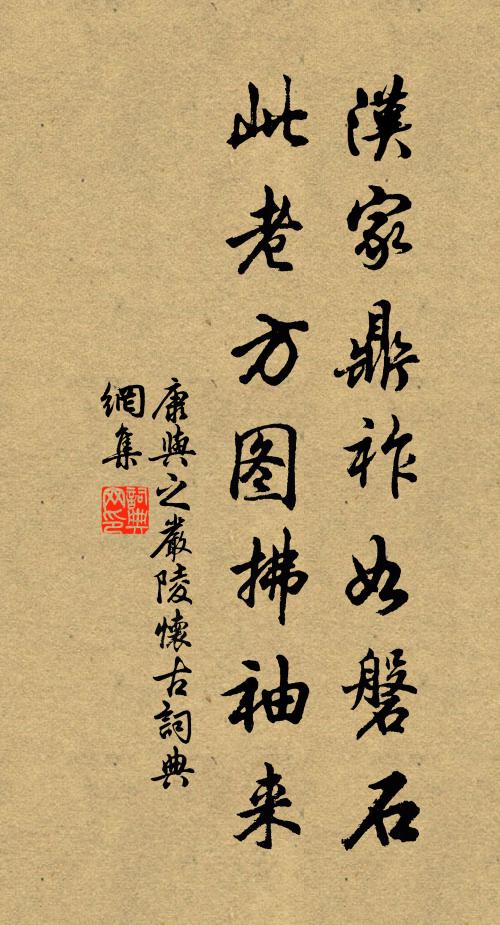 漢家鼎祚如磐石
此老方图拂袖来
康與之嚴陵懷古詞典
網集
詞典
网印